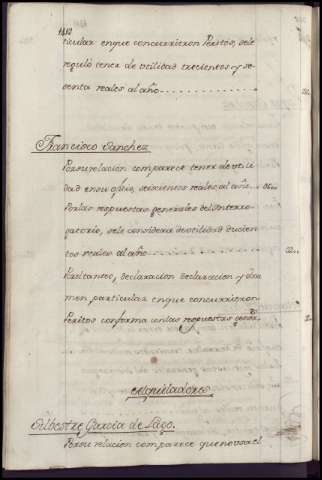 ticular enque concurrieron Peritos, sele
reguló tener de utilidad trecientos y se-
senta reales al año
Francisco Sanchez
Por su relacion comparece tener de utili
dad en su ofizio, seiscientos reales al año
Por las respuestas generales del Interro-
gatorio, sele considera de utilidad ducien-
tos reales al año
Por tanteo, declaracion declaracion y
men particular enque concurrieron
Peritos conforma con las respuestas
Esquiladores
Silbestre Garcia de Lago.
Por su relacion comparece que no usa el